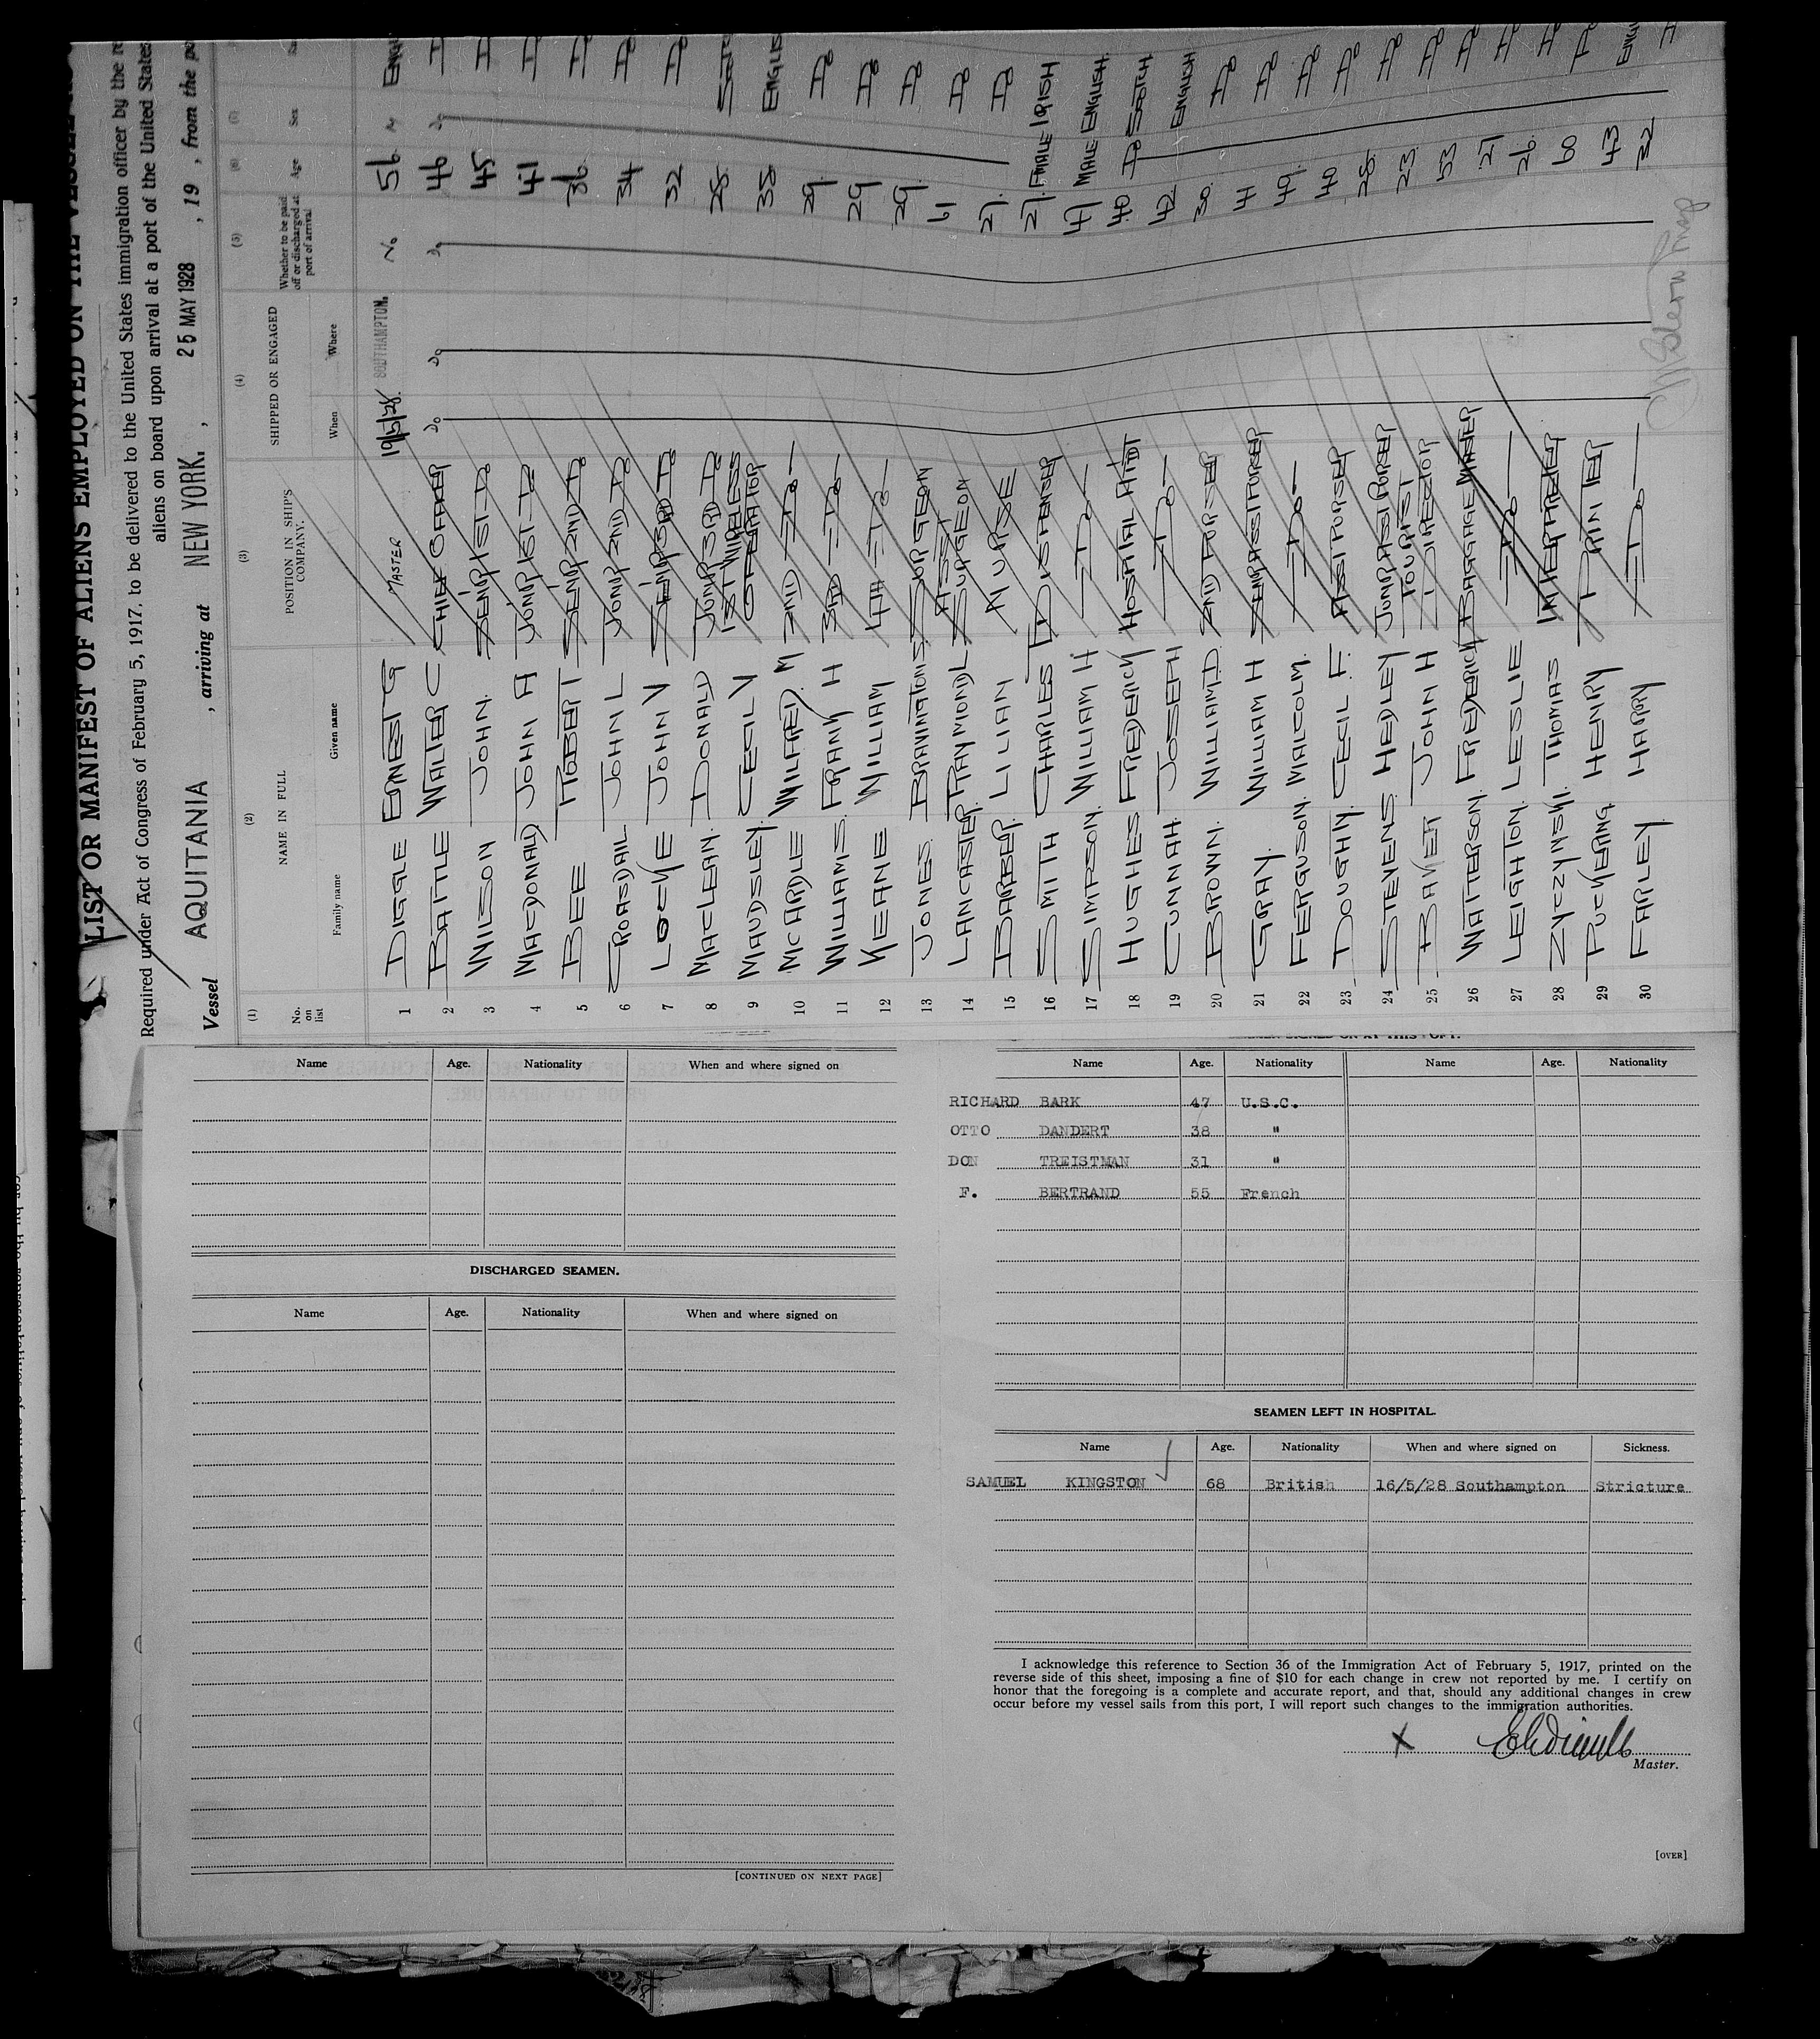 LIST OR MANIFEST OF ALIENS EMPLOYED ON THE
Required under Act of Congress of February 5, 1917. to be delivered to the United States immigration officer by the
aliens on board upon arrival at a port of the United States
Vessel AQUITANIA , arriving at NEW YORK. , 25 MAY 1928 , 19 , from the
(1) (2) (3) (4) (5) (6)
No. on list NAME IN FULL POSITION IN SHIP'S COMPANY. SHIPPED OR ENGAGED Whether to be paid off or discharged at port of arrival Age Sex
Family name Given name When Where
1 DIGGLE ERNEST G MASTER 19/5/28 SOUTHAMPTON. No 56 M
2 BATTLE WALTER C CHIEF OFFICER Do Do Do 46 Do
3 WILSON JOHN. SENR 1ST DO 45 DO
4 MACDONALD JOHN A JUNR 1ST DO 41 DO
5 BEE ROBERT SENR 2ND DO 36 DO
6 CROASDAIL JOHN L JUNR 2ND DO 34 DO
7 LOCKE JOHN V SENR 3RD DO 32 DO
8 MACLEAN. DONALD JUNR 3RD DO 28 SCOTCH
9 MAUDSLEY. CECIL V 1ST WIRELESS OPERATOR 38 ENGLISH
10 MCARDLE WILFRED. M 2ND DO 29 DO
11 WILLIAMS. FRANK H 3RD DO 29 DO
12 KEANE WILLIAM 4TH DO 29 DO
13 JONES. BRAVINGTON S. SURGEON 61 DO
14 LANCASTER. RAYMOND L. ASSIST SURGEON 27. DO
15 BARBER. LILIAN NURSE 27. FEMALE IRISH
16 SMITH CHARLES DISPENSER 47 MALE ENGLISH.
17 SIMPSON. WILLIAM H DO 40 DO SCOTCH
18 HUGHES FREDERICK HOSPITAL ATTDT 42 ENGLISH
19 CUNNAH JOSEPH DO 30. DO
20 BROWN. WILLIAM D. 2ND PURSER 41 DO
21 GRAY. WILLIAM H SENR ASST PURSER 49. DO
22 FERGUSON. MALCOLM. DO 40 DO
23 DOUGHTY. CECIL F. ASST PURSER 28. DO
24 STEVENS. HEDLEY JUNR ASST PURSER 23. DO
25 BAKER JOHN H TOURIST DIRECTOR 53 DO
26 WATTERSON. FREDERICK BAGGAGE MASTER 27 DO
27 LEIGHTON. LESLIE DO 26. DO
28 ZYCZYNSKI. THOMAS INTERPRETER 60 DO
29 PUCKERING. HENRY PRINTER 43
30 FARLEY HARRY DO 32 DO
Name Age. Nationality When and where signed on
DISCHARGED SEAMEN.
Name Age. Nationality When and where signed on
[CONTINUED ON NEXT PAGE]
Name Age. Nationality Name Age. Nationality
RICHARD BARK 47 U.S.C.
OTTO DANDERT 38 "
DON TREISTMAN 31 "
F. BERTRAND 55 French
SEAMEN LEFT IN HOSPITAL.
Name Age. Nationality When and where signed on Sickness.
SAMUEL KINGSTON 68 British 16/5/28 Southampton Stricture
I acknowledge this reference to Section 36 of the Immigration Act of February 5, 1917, printed on the
reverse side of this sheet, imposing a fine of $10 for each change in crew not reported by me. I certify on
honor that the foregoing is a complete and accurate report, and that, should any additional changes in crew
occur before my vessel sails from this port, I will report such changes to the immigration authorities.
X
Master.
[OVER]